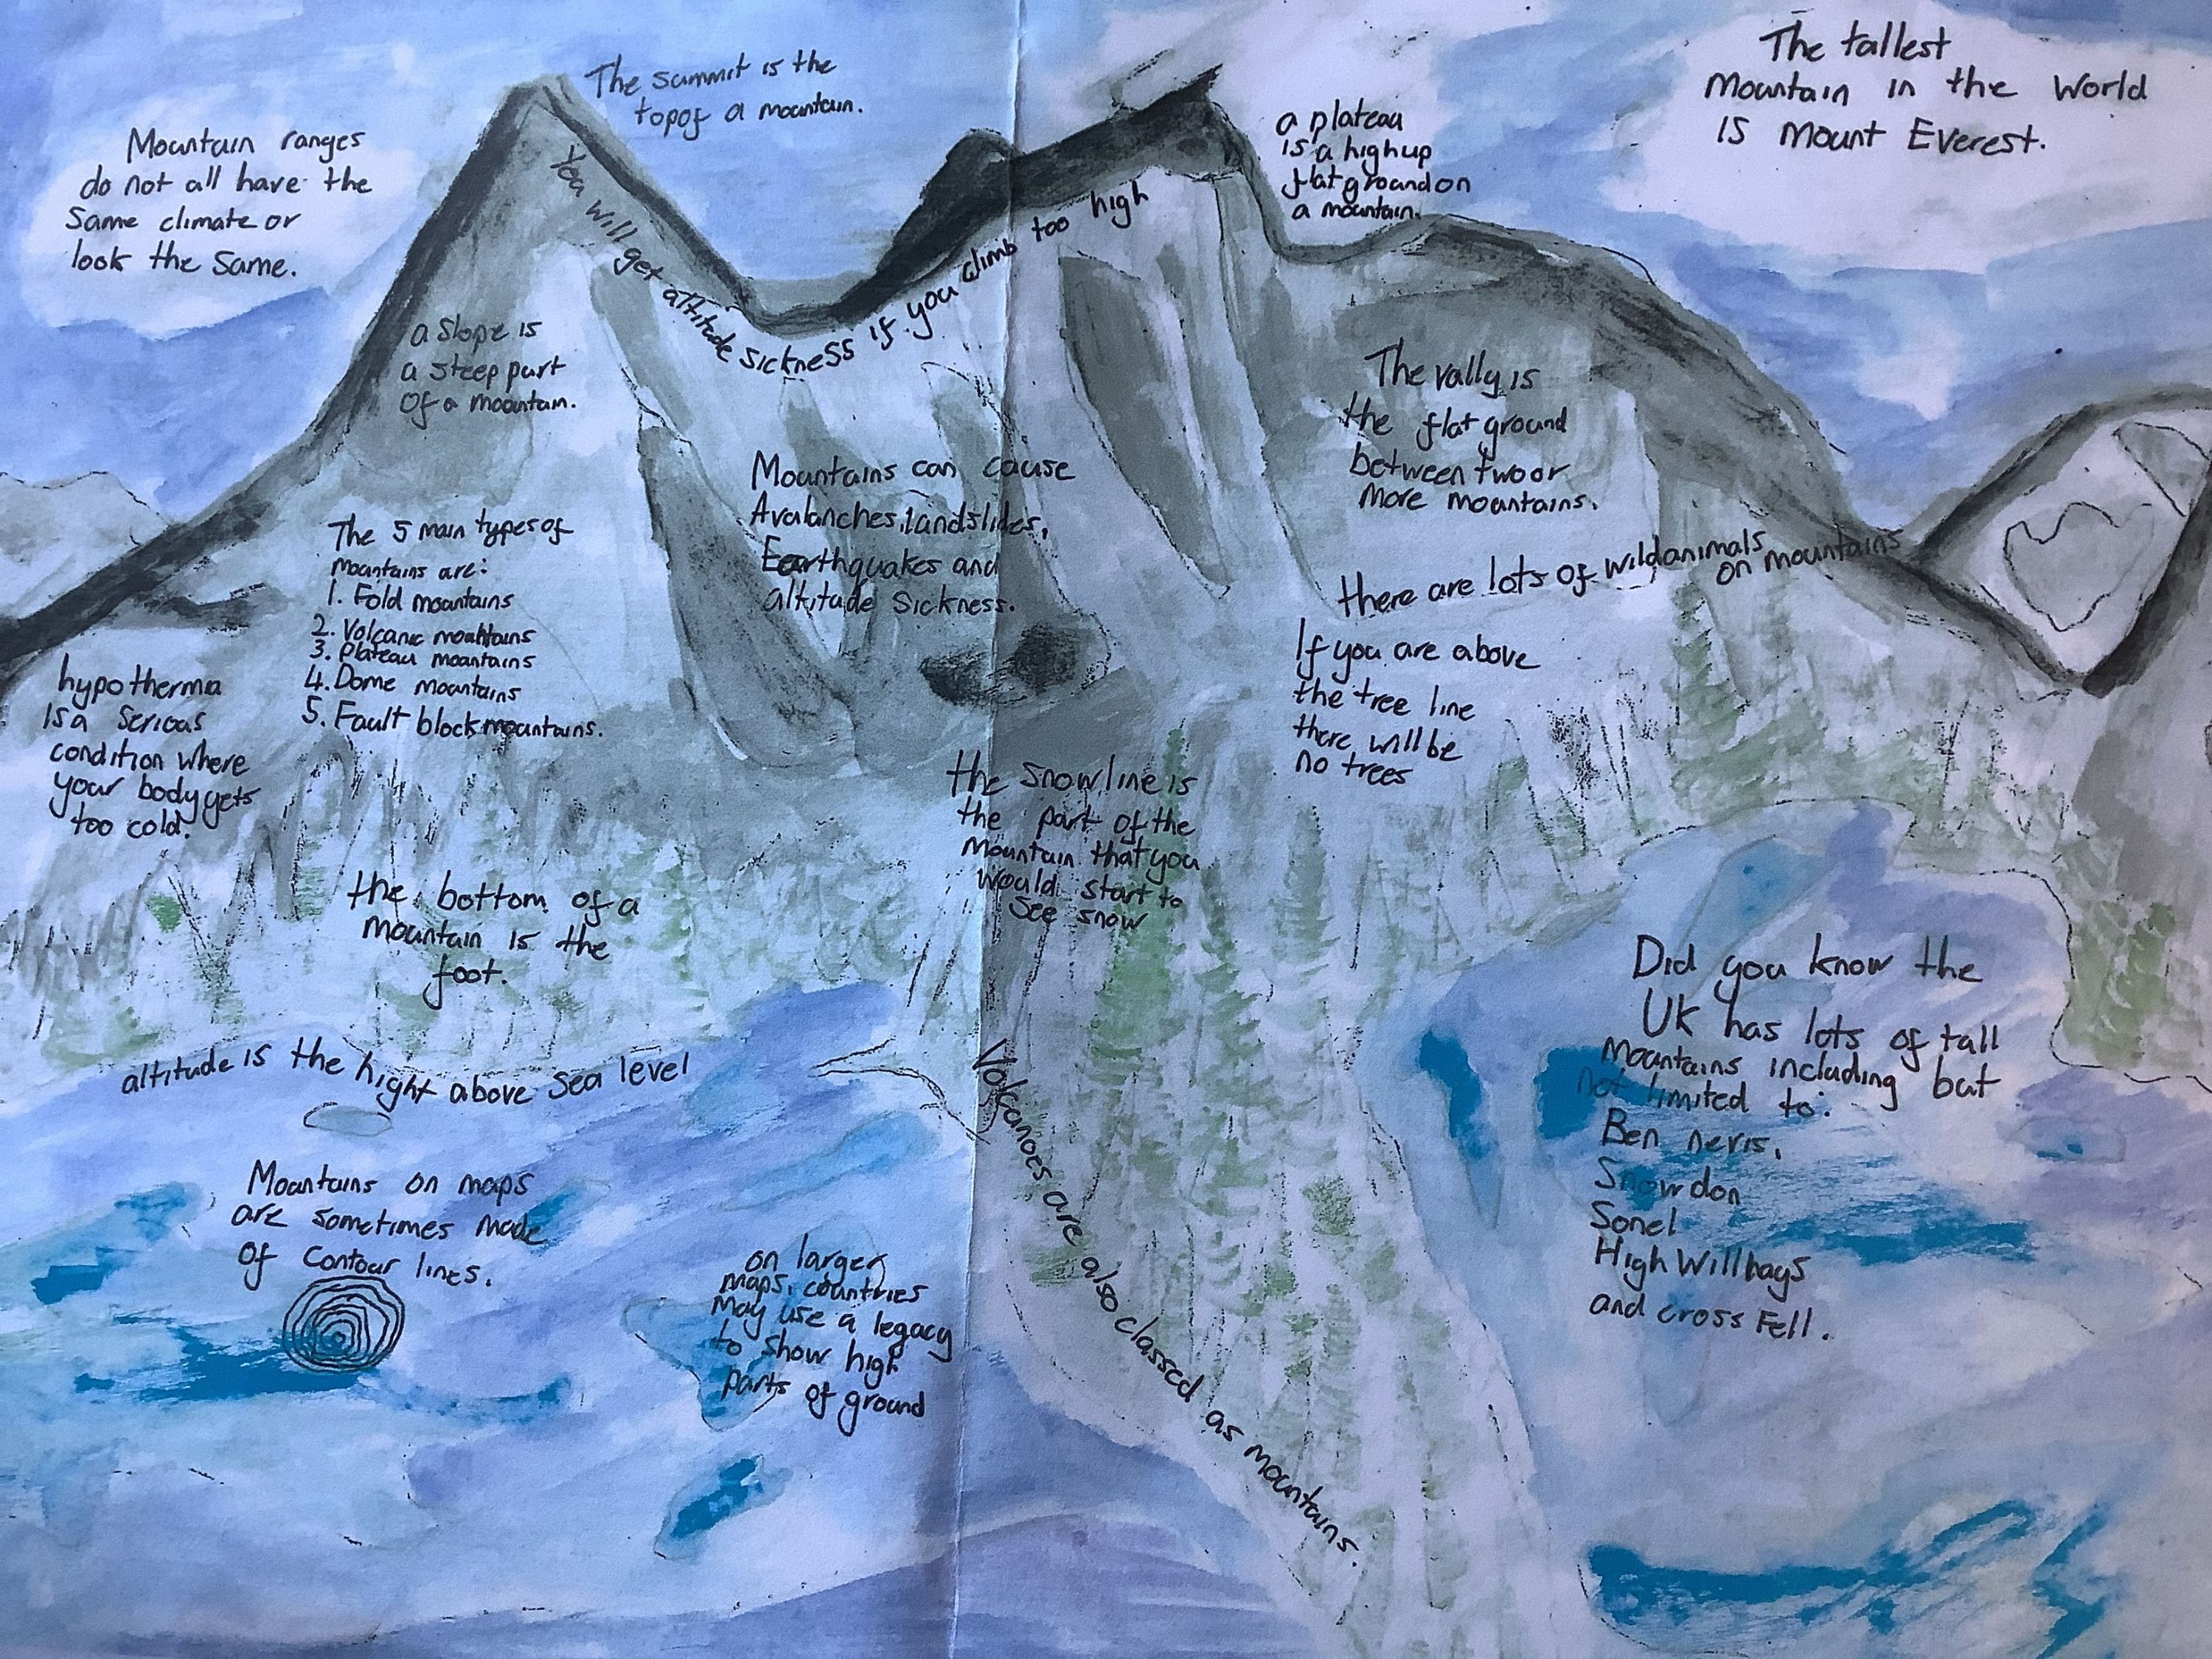 The summit is the
topof a mountain.
The tallest
Mountain in the World
is Mount Everest.
Mountain ranges
do not all have the
Same climate or
look the Same.
a plateau
is a high up
flat ground on
a mountain.
You will get altitude sickness if you climb too high
a Slope is
a steep part
Of a mountain.
The vally is
the flat ground
between two or
More mountains.
Mountains can cause
Avalanches, landslides,
Earthquakes and
altitude Sickness.
The 5 main types of
mountains are:
1. Fold mountains
2. Volcanic mountains
3. Plateau mountains
4. Dome mountains
5. Fault block mountains.
there are lots of wild animals
on mountains
If you are above
the tree line
there will be
no trees
hypotherma
is a Serious
condition where
your body gets
too cold.
the snow line is
the part of the
Mountain that you
would start to
See snow
the bottom of a
mountain is the
foot.
Did you know the
UK has lots of tall
Mountains including but
not limited to:
Ben neris,
Snowdon
Sonel
High Willhays
and cross Fell.
altitude is the hight above sea level
Volcanoes are also classed as mountains.
Mountains on maps
are sometimes made
Of contour lines.
on larger
maps, countries
may use a legacy
to show high
parts of ground